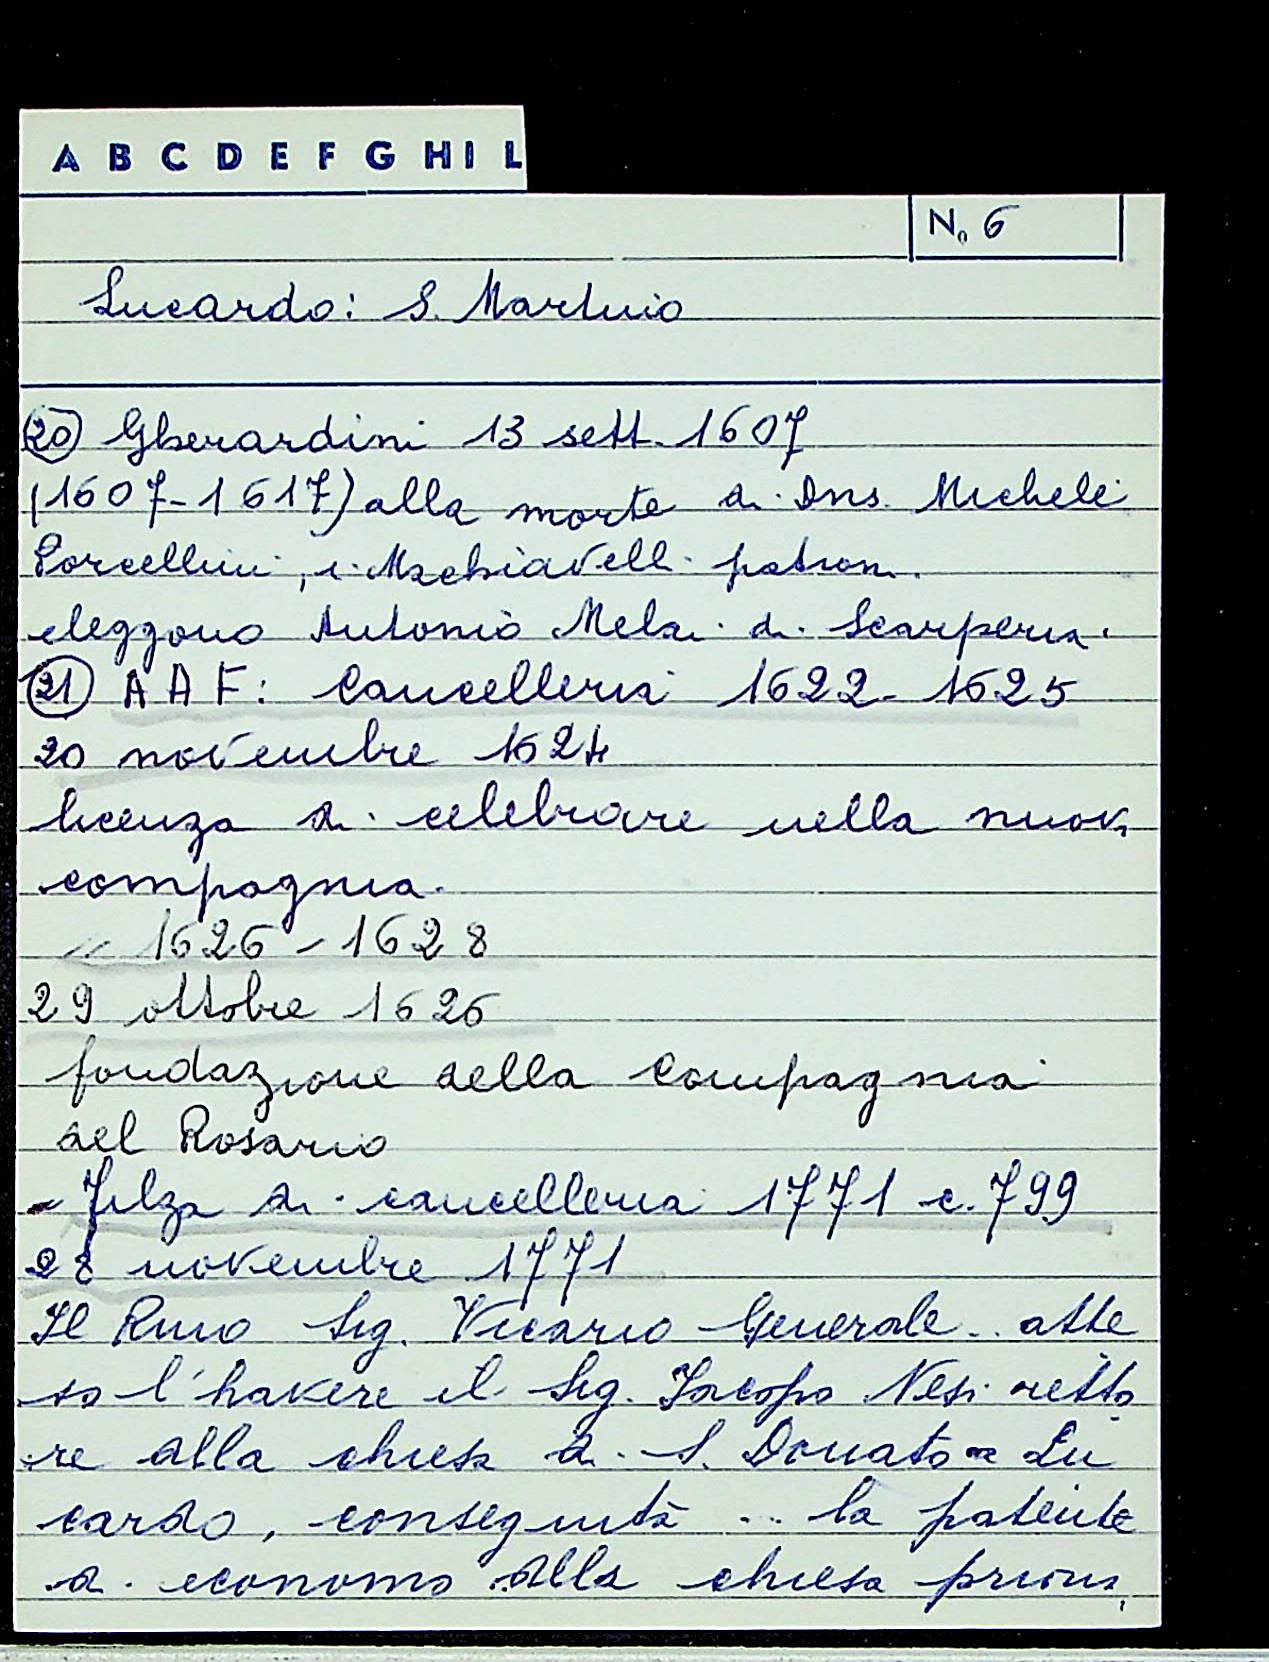 A B C D E F G H I L
N. 6
Lucardo: S. Martino
(20) Gherardini 13 sett. 1607
(1607-1617) alla morte di Dns. Michele
Porcellini, i Machiavelli patroni
eleggono Antonio Mela di Scarperia.
(21) A A F: Cancelleria 1622-1625
20 novembre 1624
licenza di celebrare nella nuova
compagnia.
" 1626-1628
29 ottobre 1626
fondazione della Compagnia
del Rosario
- Filza di cancelleria 1771 c. 799
28 novembre 1771
Il Rmo Sig. Vicario Generale.. atte
so l'havere il Sig. Jacopo Nesi retto
re alla chiesa di S. Donato a Lu
cardo, conseguita ... la patente
di economo alla chiesa priori